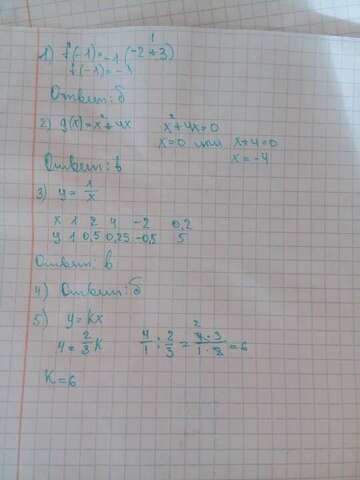 1
1) f(-1)=-1(-2+3)
f(-1)=-1
Ответ: б
2) g(x)=x²+4x x²+4x=0
x=0 или x+4=0
x=-4
Ответ: в
3) y=1/x
x 1 2 4 -2 0,2
y 1 0,5 0,25 -0,5 5
Ответ: в
4) Ответ: б
5) y=kx
4=2/3k 4/1:2/3=4·3/1·2=6
2
K=6